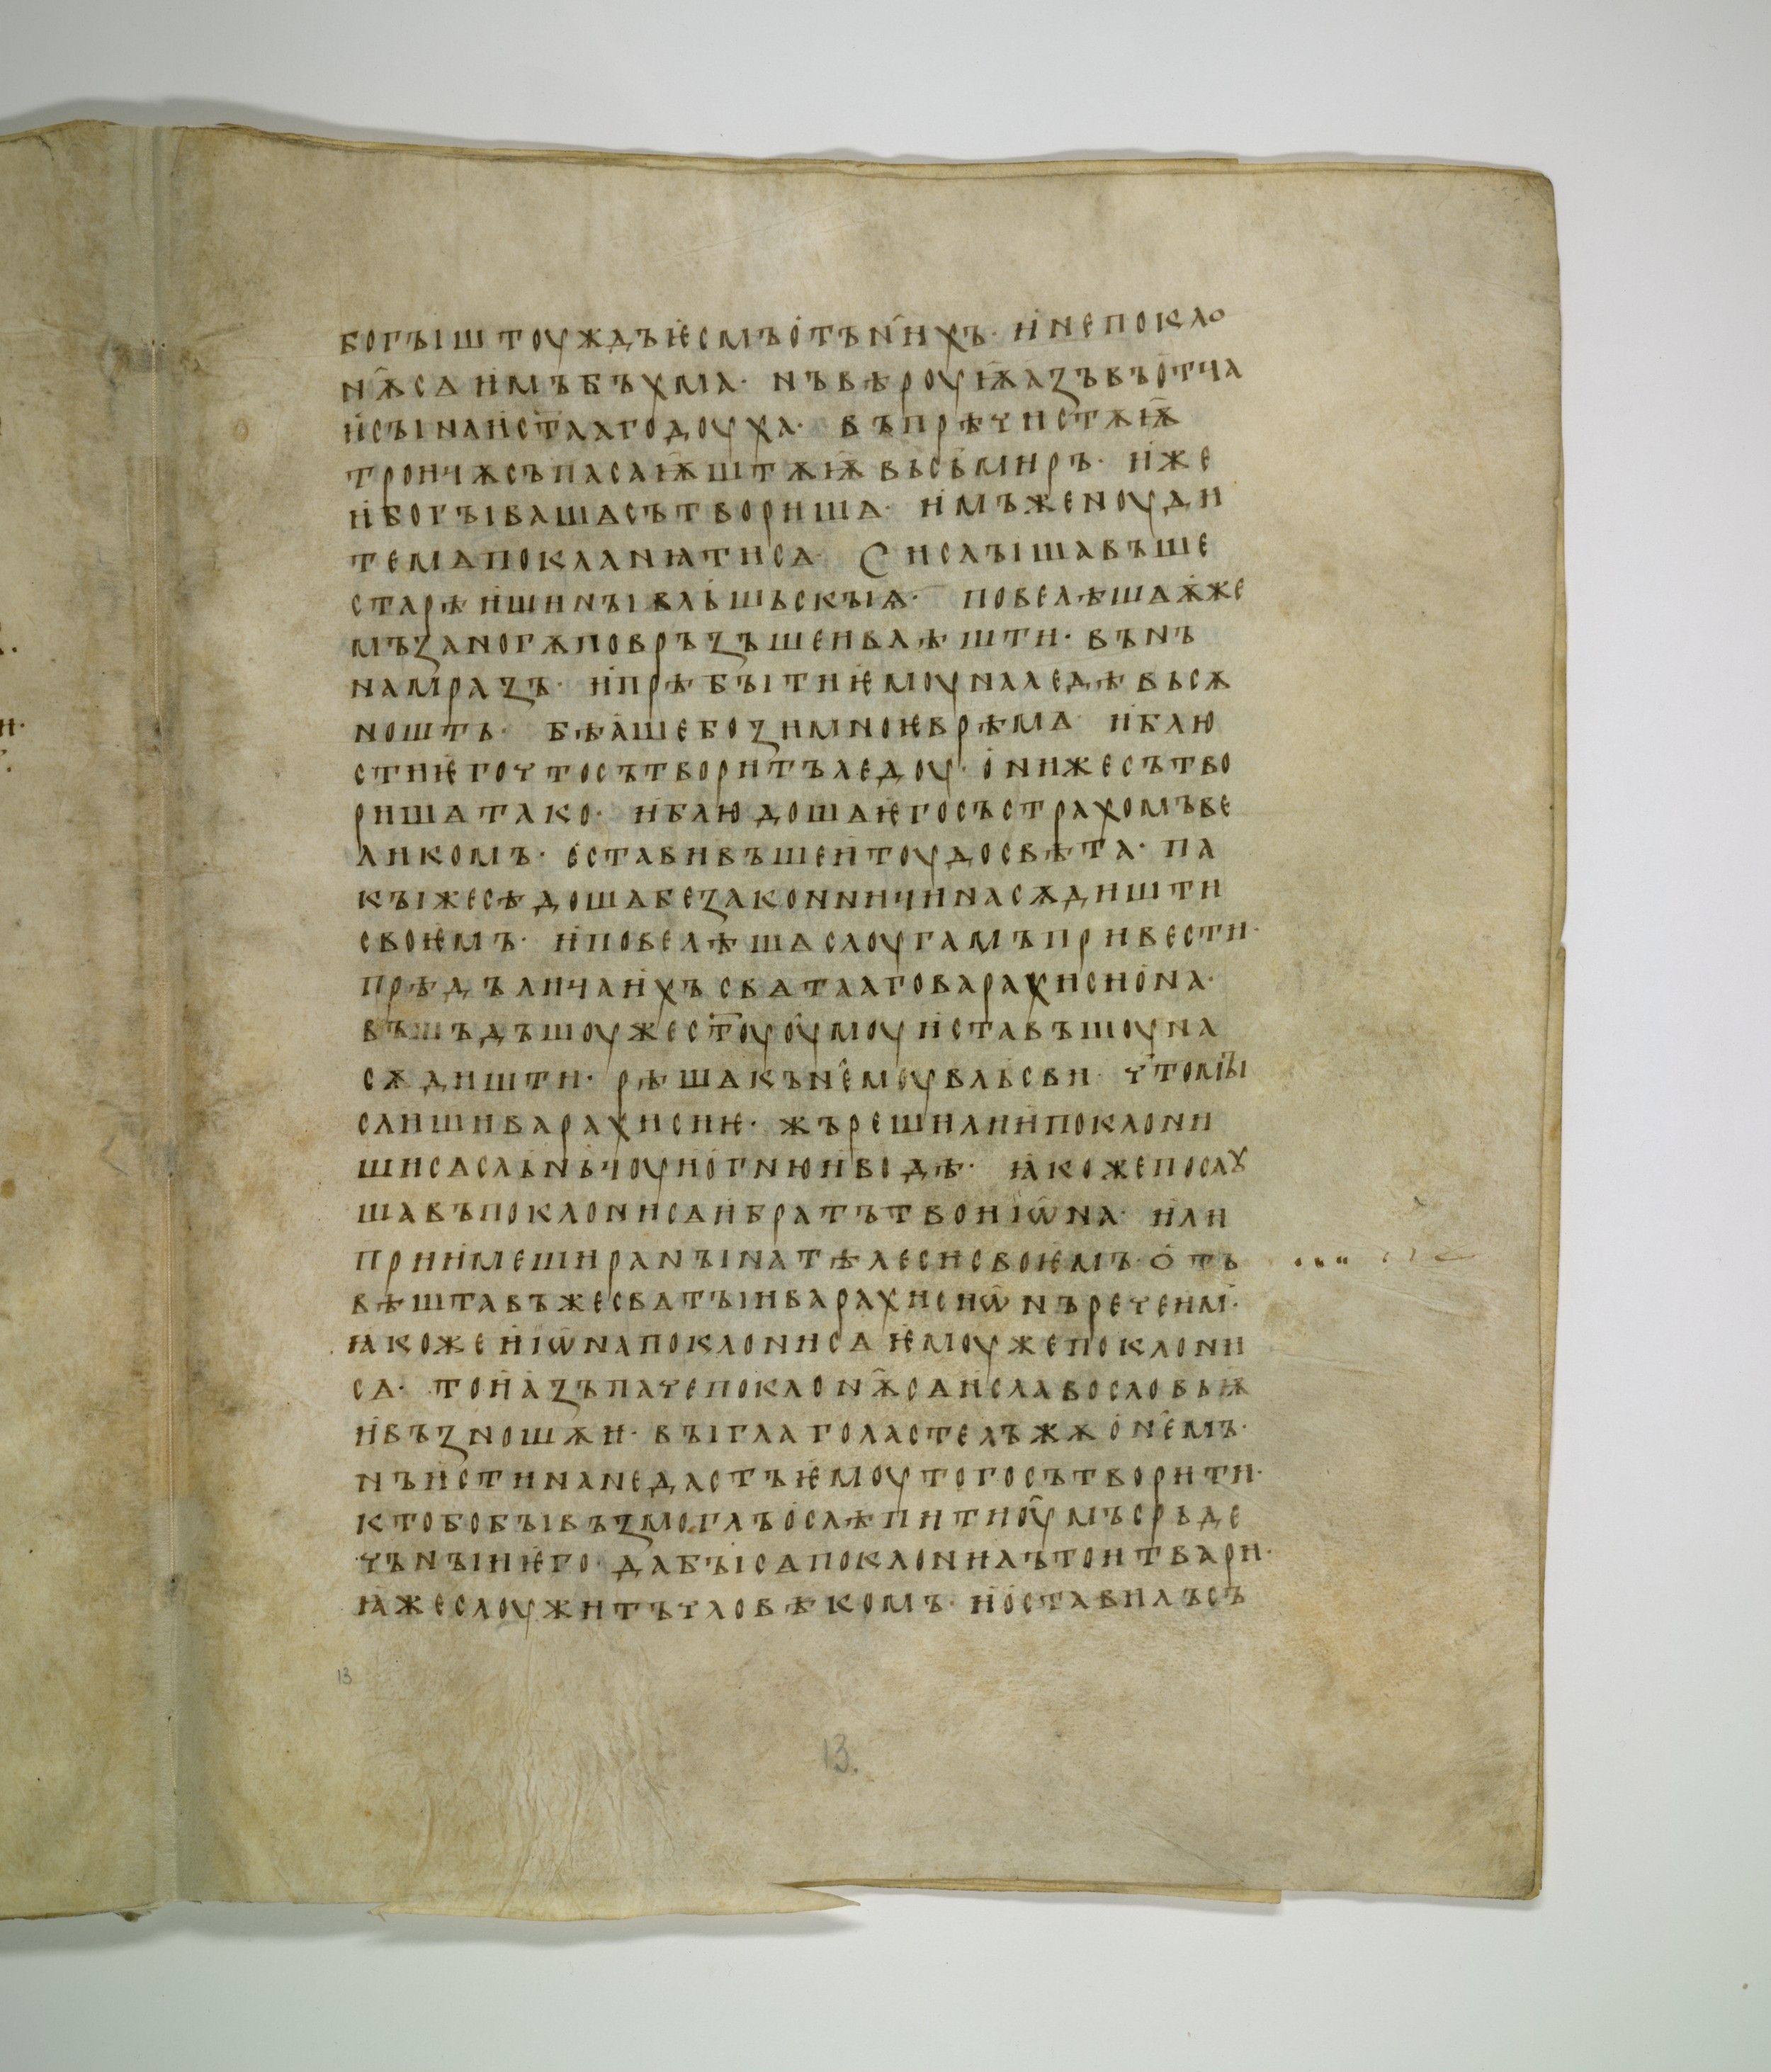 богꙑштоуждъѥсмъотън҄ихъ· и҅непокло
н҄ѫсѧи҅мъбъхма· нъвѣроуѭазъвъо҅тьча
и҅сꙑнаи҅ст҃аагодоуха· въпрѣчистѫѭ
троицѫсъпасаѭштѫѭвьсьмиръ· и҅же
и҅богꙑвашѧсътвориша· и҅мъженоуди
темѧпокланꙗтисѧ· Сислꙑшавъше
старѣи҅шинꙑвлъшьскꙑѩ· повелѣшѧѫже
мъзаногѫповръзъшеивлѣшти· вънъ
намразъ· и҅прѣбꙑтиѥ҅моуналедѣвьсѫ
ношть· бѣа҅шебозимноѥврѣмѧ и҅блю
стиѥ҅гочтосътворитъледоу· о҅нижесътво
ришѧтако· и҅блюдошѧѥ҅госъстрахомъве
ликомъ· о҅ставивъшеи҅тоудосвѣта· па
кꙑжесѣдошѧбезаконьницинасѫдишти
своѥмъ· и҅повелѣшѧслоугамъпривести·
прѣдълицаи҅хъсвѧтааговарахисио҅на·
въшъдъшоужест҃оуоу҅моуи҅ставъшоуна
сѫдишти· рѣшѧкън҄емоувлъсви· чьтомꙑ
слишиварахисиѥ· жърешилии҅поклони
шисѧслъньцоуио҅гнюиводѣ· ꙗкожепослꙋ
шавъпоклонисѧи҅братътвоиі҅ѡна· и҅ли
прии҅меширанꙑнатѣлесисвоѥ҅мъ· о҅тъ
вѣштавъжесвѧтꙑиварахисиѡ҅нъречеим·
ꙗкожеи҅і҅ѡнапоклонисѧѥ҅моужепоклони
сѧ· тои҅а҅зъпачепоклон҄ѫсѧи҅славословьѭ
и҅възношѫи· вꙑглаголастелъжѫо҅н҄емъ·
нъи҅стинанедастъѥ҅моутогосътворити·
ктобобꙑвъзмоглъо҅слѣпитиоу҅мъсрьде
чьнꙑиѥ҅го· дабꙑсѧпоклонилътоитвари·
ꙗ҅жеслоужитъчловѣкомъ· и҅о҅ставилъсъ
13
13.